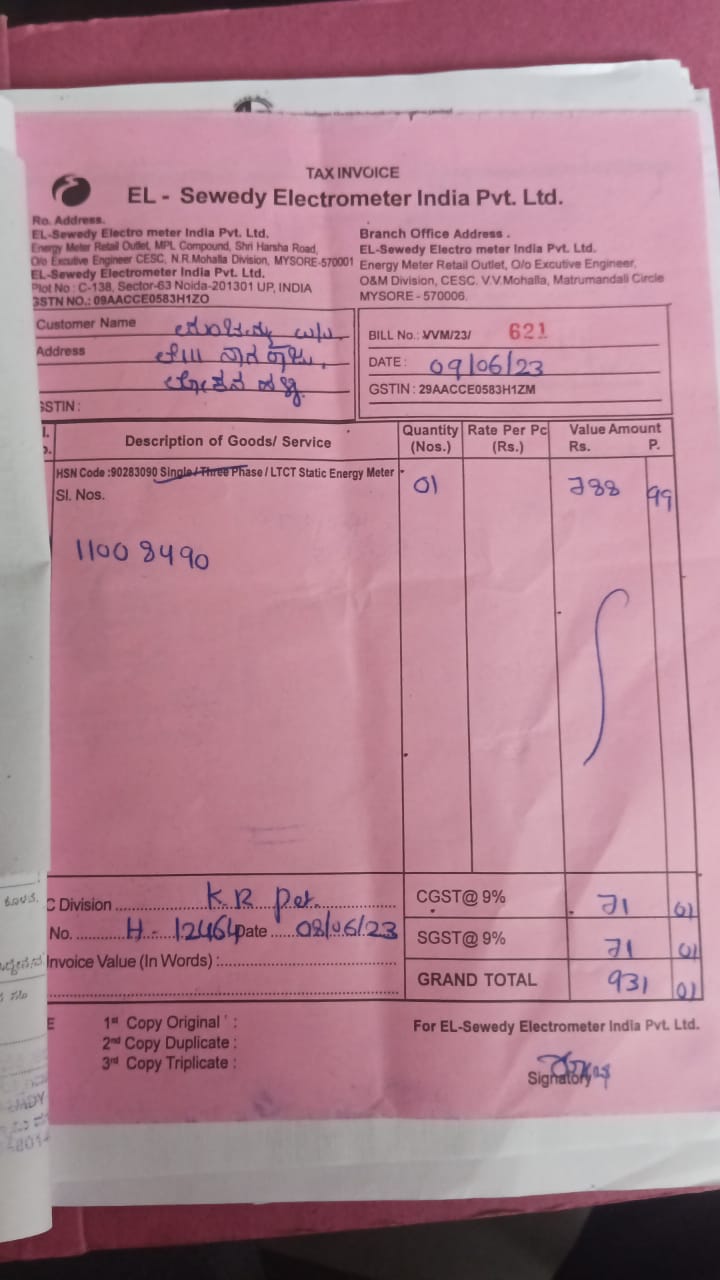 TAX INVOICE
EL - Sewedy Electrometer India Pvt. Ltd.
Ro. Address.
EL-Sewedy Electro meter India Pvt. Ltd.
Energy Meter Retail Outlet, MPL Compound, Shri Harsha Road,
O/o Excutive Engineer CESC, N.R.Mohalla Division, MYSORE-570001
EL-Sewedy Electrometer India Pvt. Ltd.
Plot No : C-138, Sector-63 Noida-201301 UP, INDIA
GSTN NO.: 09AACCE0583H1ZO
Branch Office Address .
EL-Sewedy Electro meter India Pvt. Ltd.
Energy Meter Retail Outlet, O/o Excutive Engineer,
O&M Division, CESC. V.V.Mohalla, Matrumandali Circle
MYSORE - 570006.
Customer Name
Address
GSTIN :
BILL No.: VVM/23/ 621
DATE : 09/06/23
GSTIN : 29AACCE0583H1ZM
Description of Goods/ Service Quantity (Nos.) Rate Per Pc (Rs.) Value Amount Rs. P.
HSN Code :90283090 Single / Three Phase / LTCT Static Energy Meter
Sl. Nos. 01 788 99
11008490
C Division K.R Pet. CGST@ 9% 71 01
No. H - 12464 Date 08/06/23 SGST@ 9% 71 01
Invoice Value (In Words) : GRAND TOTAL 931 01
1st Copy Original :
2nd Copy Duplicate :
3rd Copy Triplicate :
For EL-Sewedy Electrometer India Pvt. Ltd.
Signatory